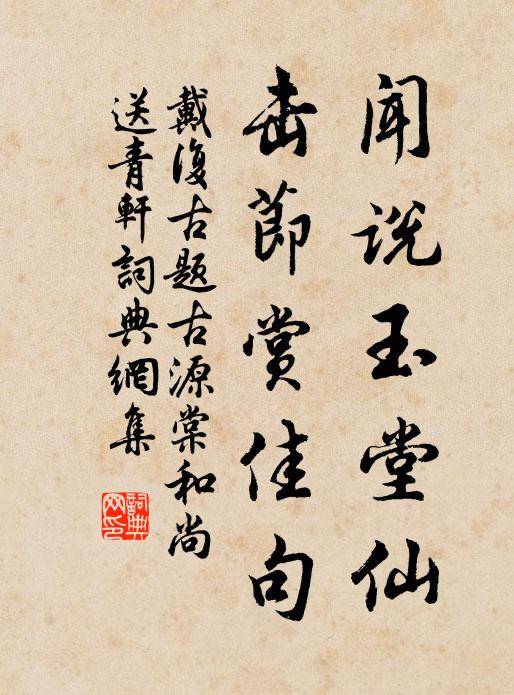 闻说玉堂仙
击節赏佳句
戴復古题古源棠和尚
送青軒詞典網集
詞典网印